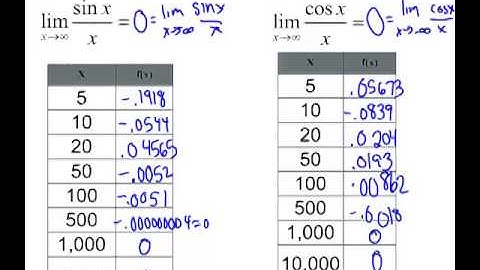 lim x→∞ sin x / x = 0 = lim x→∞ sin x / x
x f(x)
5 -.1918
10 -.0544
20 .04565
50 -.0052
100 -.0051
500 -.000000004=0
1,000 0
lim x→∞ cos x / x = 0 = lim x→∞ cos x / x
x f(x)
5 .05673
10 -.0839
20 .0204
50 .0193
100 .00862
500 -.0018
1,000 0
10,000 0